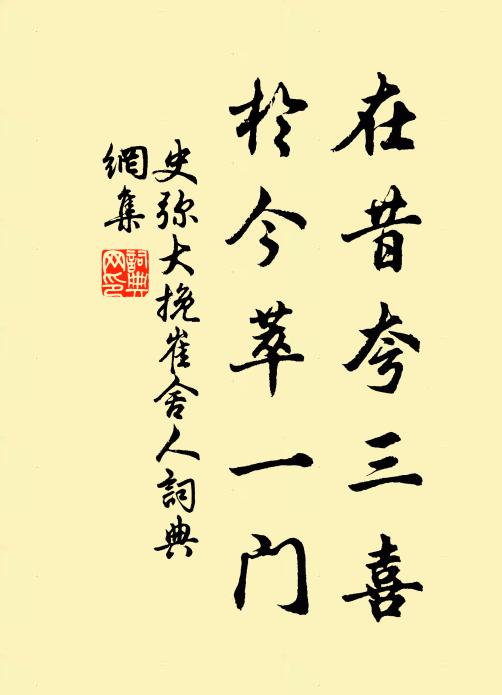 在昔夸三喜
於今萃一门
史弥大挽崔舍人詞典
網集
詞典
网印